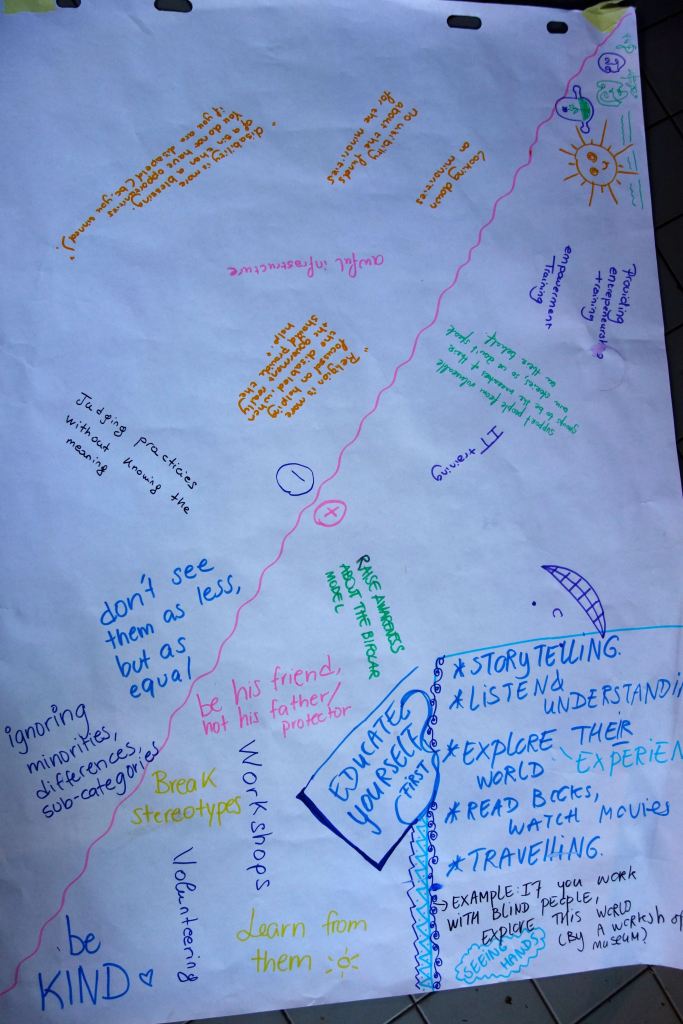 "disability is more a blessing
of a sin than
You do not have opportunities
if you are disabled (
no visibility funds
about the
for the minorities
Looking down
on minorities
awful infrastructure
"Religion is more
focused on helping
the disabled when
the government really
should provide the
help"
Judging practicies
without knowing the
meaning
−
+
Providing
entrepeneurating
training
empowerment
training
support people from vulnerable
groups to be the
on their behalf
IT training
don't see
them as less,
but as
equal
RAISE AWARENESS
ABOUT THE BIPOLAR
MODEL
be his friend,
not his father/
protector
ignoring
minorities,
differences,
sub-categories
Break
stereotypes
Workshops
Volunteering
Learn from
them
be
KIND
EDUCATE
YOURSELF
FIRST
*STORYTELLING.
*LISTEN &
UNDERSTANDI
*EXPLORE THEIR
WORLD
EXPERIEN
*READ BOOKS,
WATCH MOVIES
*TRAVELLING.
→ EXAMPLE: If YOU WORK
WITH BLIND PEOPLE,
EXPLORE THIS WORLD
(BY A WORKSH of
MUSEUM)
SEEING
HAND